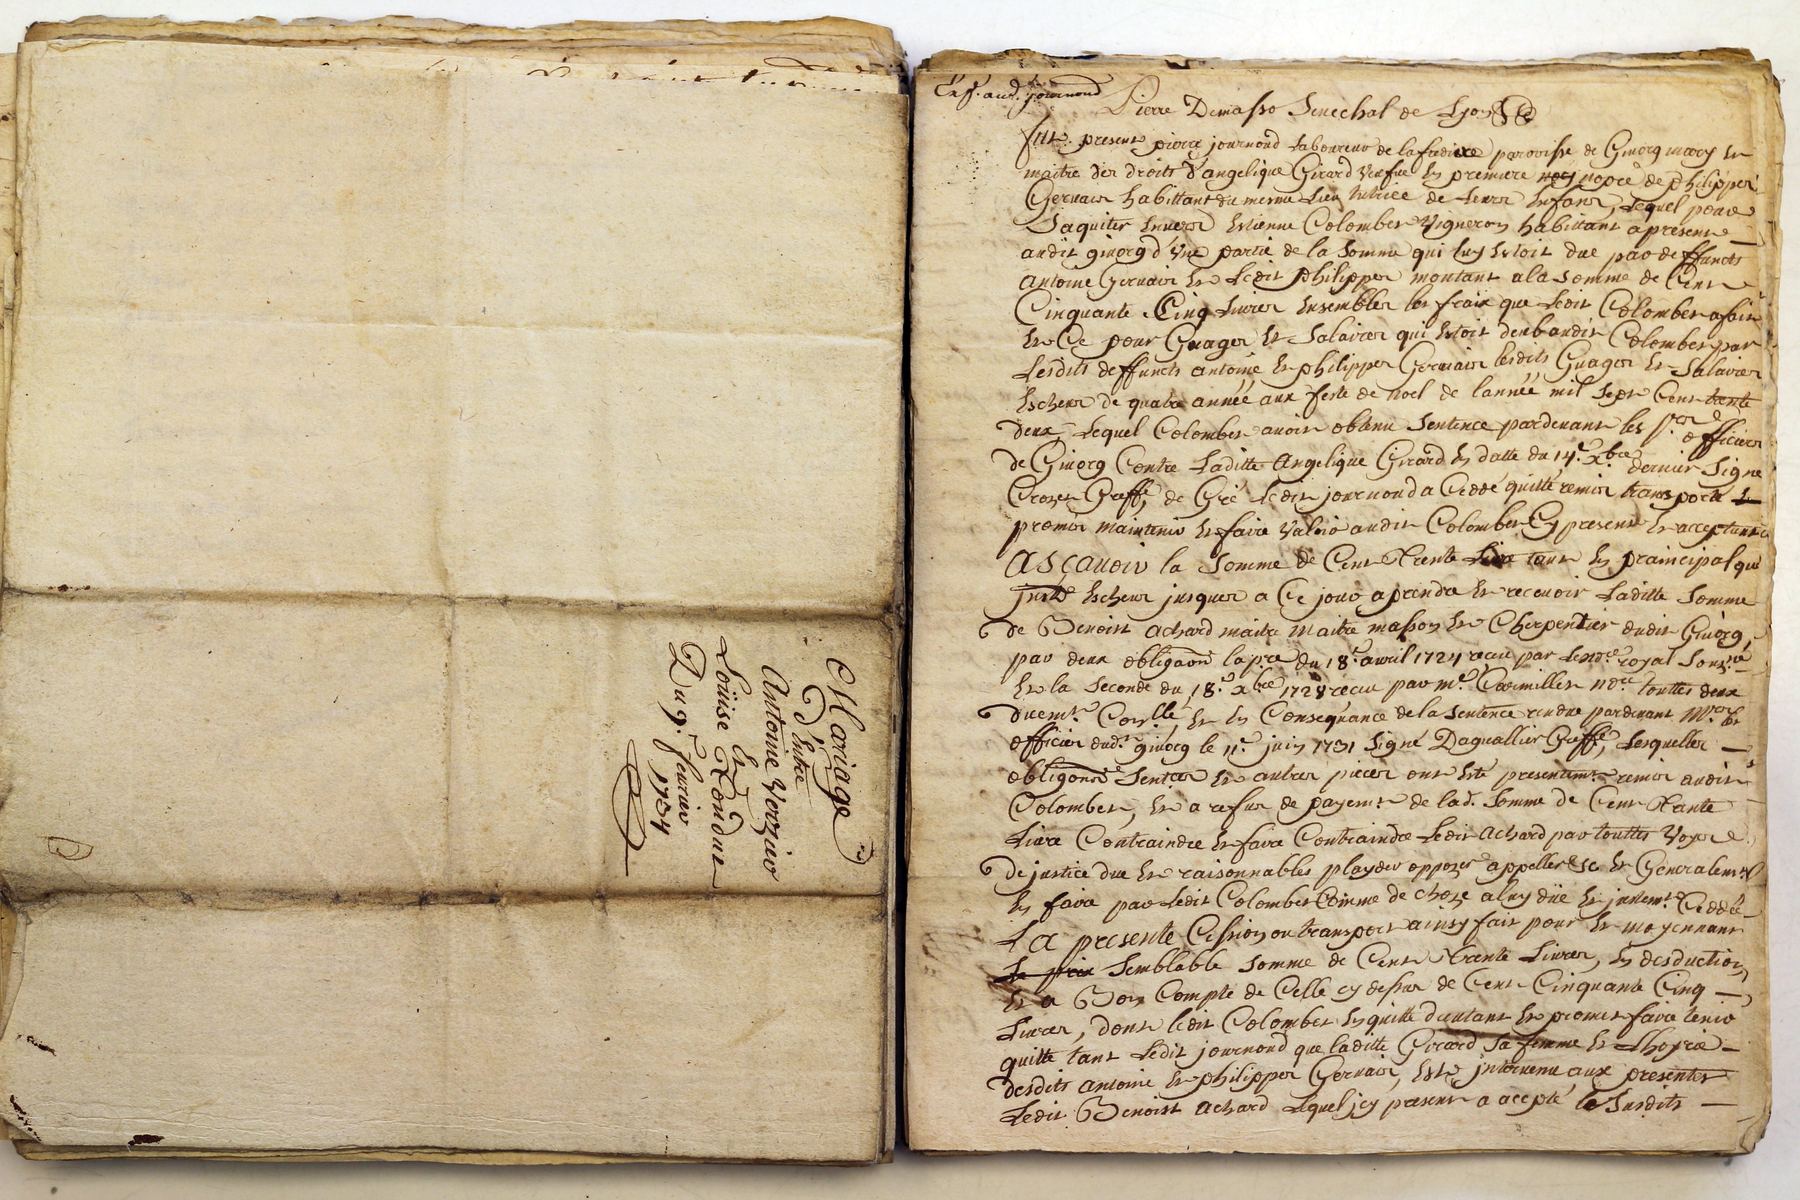 Mariage
D'Entre
Antoine Verzier
Et
Loüise Tondut
Du 9.e feurier
1734
Exp. aud. journoud
Pierre Demasso Senechal de Lyon
fut present pierre journoud Laboureur de la paroisse de Givorg mary Et
maitre des droits d'angelique Girard Veufue En premiere nopce de philippes
Geruais habittant du mesme Lieu tutrice de Leurs Enfans, Lequel pour
S'aquiter Enuers Estienne Colombet Vigneron habittant a present
audit givorg d'Vne partie de la Somme qui Luy Estoit due par deffuncts
Antoine Geruais Et Ledit philippes montant a la Somme de Cent
Cinquante Cinq Liures Ensembles les fraix que Ledit Colombet a fait
Et Ce pour Guages Et Salaires qui Estoit deub audit Colombet par
Lesdits deffuncts antoine Et philippes Geruais lesdits Guages Et Salaires
Escheus de quatre année aux feste de noel de l'année mil Sept Cent trente
deux, Lequel Colombet auoit obtenu Sentence pardeuant les officiers
de Givorg Contre Laditte Angelique Girard En datte du 14.e Xbre dernier Signé
Crozet Greff., de Gré Ledit journoud a Ceddé quitté remis transporté Et
promis maintenir Et faire Valoir audit Colombet Cy present Et acceptant
ASçauoir la Somme de Cent Trente Liure tant En prainicipal que
Escheus jusques a Ce jour a prendre Et receuoir Laditte Somme
de Benoist Achard maitre maitre masson Et Cherpentier dudit Givorg,
par deux obligaons la p.re du 18.e avril 1724 receu par Le no.re royal Sous.né
Et la Seconde du 18.e Xbre 1728 receu par m.e Carmillet n.re touttes deux
duem.t Con.llé Et En Consequance de la Sentence rendue pardeuant M.rs les
officier dud.t givorg le 11.e juin 1731 Signé Daguallier Greffr, Lesquelles
obligaons Sentce Et autres pieces ont Esté presentem.t remis audit
Colombet, Et a refus de payem.t de lad. Somme de Cent Trante
Liure Contraindre Et faire Contraindre Ledit Achard par touttes Voyes
de justice due Et raisonnables playder opposer appeller &c Et Generalem.t
En faire par Ledit Colombet Comme de choze a luy düe Et justem.t Ceddée
La presente Cession ou transport ainsy fait pour Et moyennant
Le prix Semblable Somme de Cent Trente Livres, En desduction
Et a Bon Compte de Celle cy dessus de Cent Cinquante Cinq
Liures, dont ledit Colombet En quitte d'autant Et promet faire tenir
quitte tant Ledit journoud que laditte Girard Sa femme Et L'hoyrie
desdits antoine Et philippes Geruais, Est interuenu aux presentes
Ledit Benoist Achard Lequel jcy present a accepté le Susdits